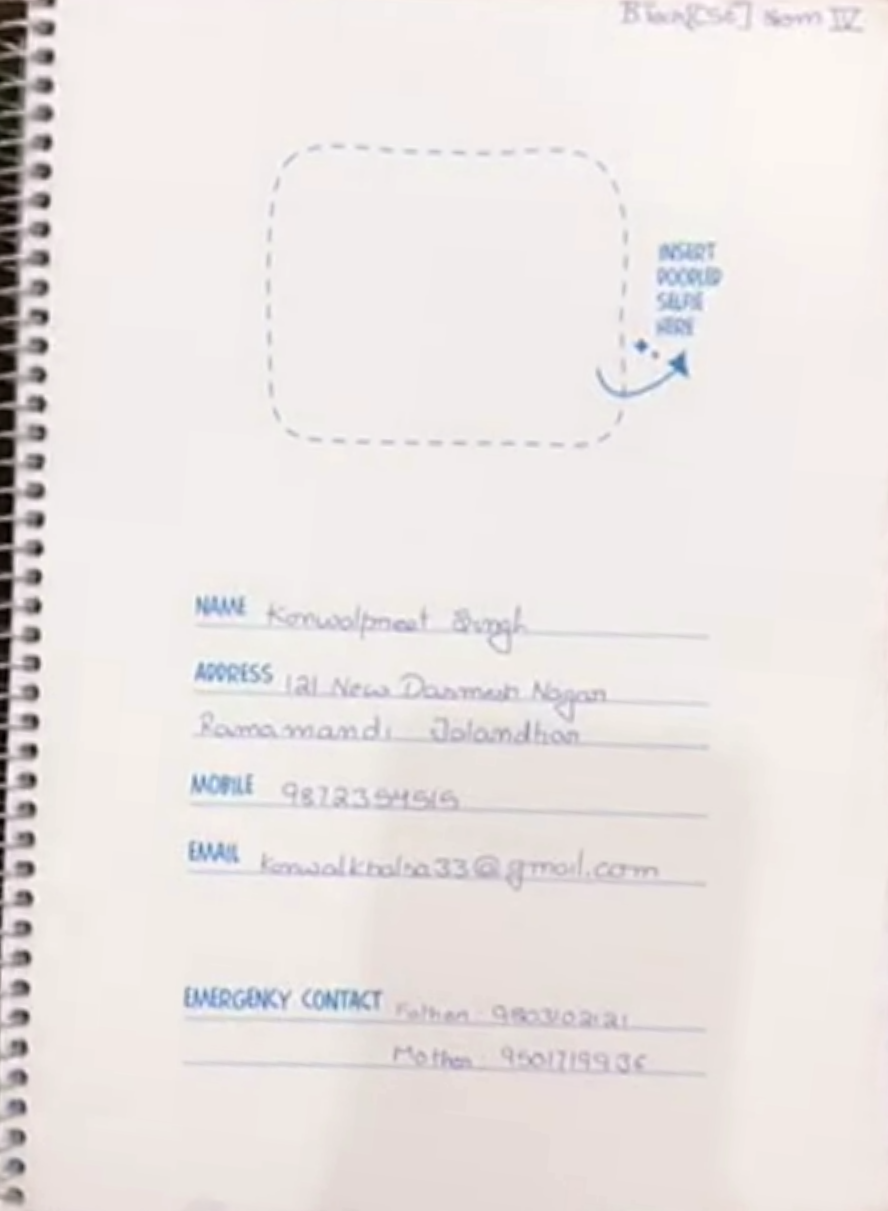 BTech[CSE] Sem IV
INSERT
DOODLED
SELFIE
HERE
NAME Konwalpreet Singh
ADDRESS 121 New Dasmesh Nagar
Ramamandi Jalandhar
MOBILE 9872354515
EMAIL konwalkhalsa33@gmail.com
EMERGENCY CONTACT Father: 9803102121
Mother: 9501719936